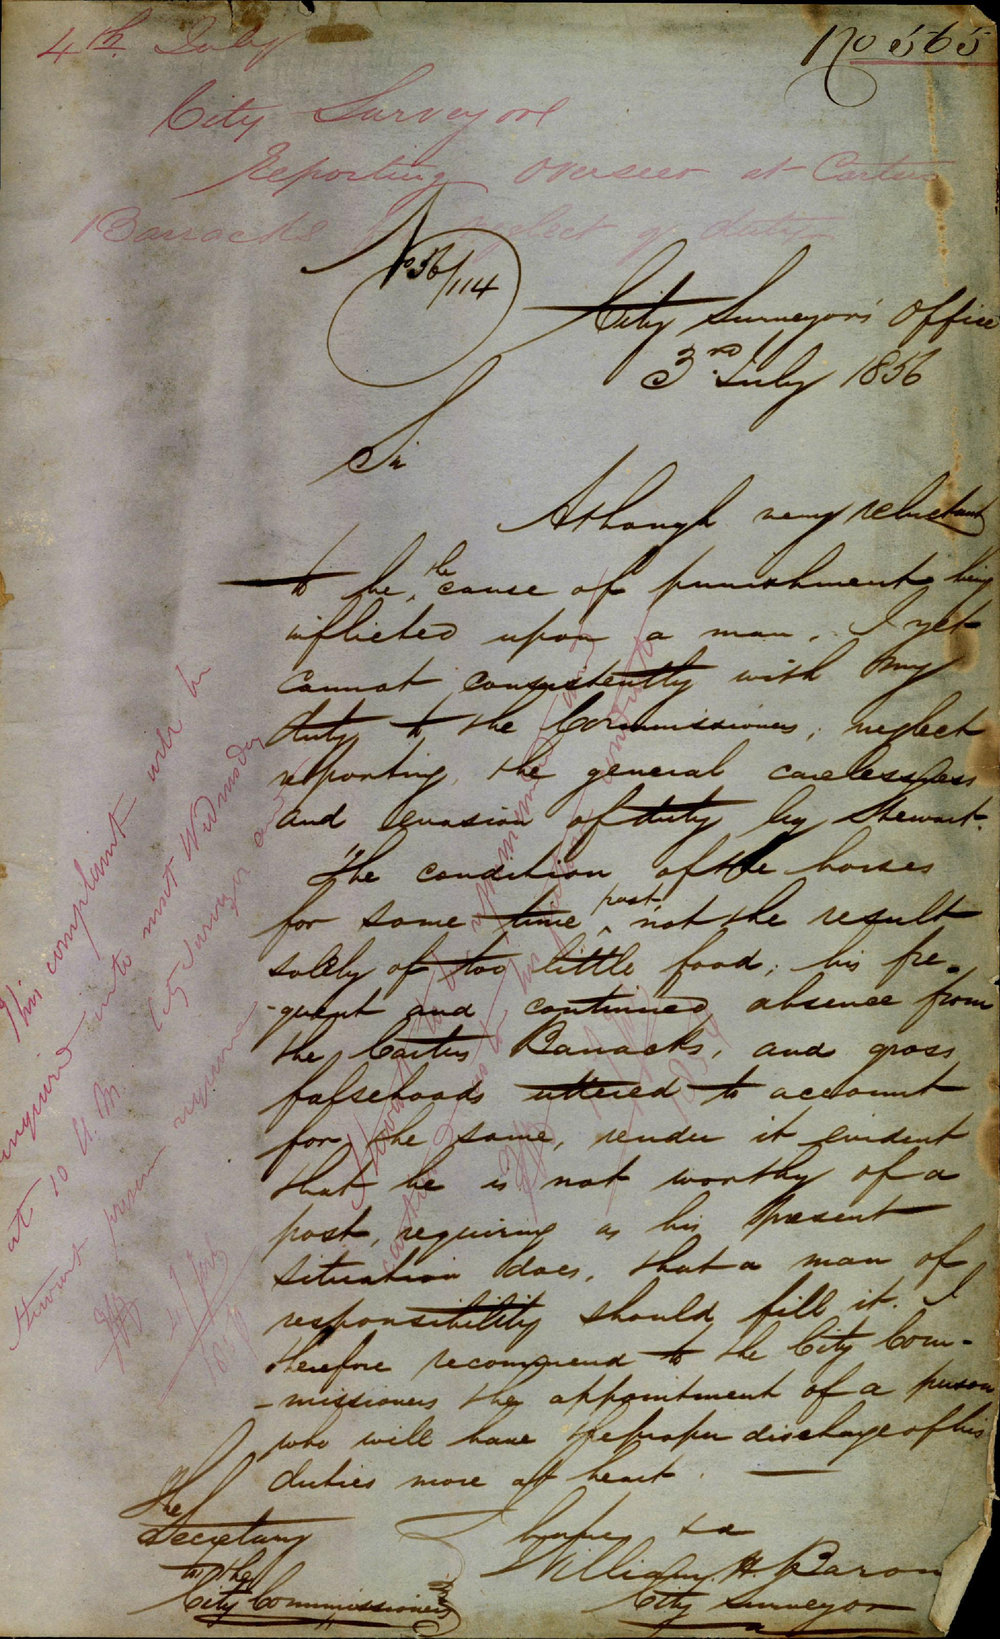 No 565
4th July
City Surveyor
Reporting Overseer at Carters
Barracks neglect of duty
No 56/114
City Surveyor's Office
3rd July 1856
Sir
Although very reluctant
to be the cause of punishment being
inflicted upon a man, I yet
cannot consistently with my
duty to the Commissioners, neglect
reporting the general carelessness
and evasion of duty by Stewart.
The condition of the horses
for some time past not the result
solely of too little food; his fre-
-quent and continued absence from
the Carters Barracks, and gross
falsehoods uttered to account
for the same, render it evident
that he is not worthy of a
post, requiring as his present
situation does, that a man of
responsibility should fill it. I
therefore recommend to the City Com-
-missioners the appointment of a person
who will have the proper discharge of his
duties more at heart.
William H. Baron
City Surveyor
The
Secretary
to the
City Commissioners
This complaint will be
enquired into next Wednesday
at 10 A.M. City Surveyor and
Stewart
4 July